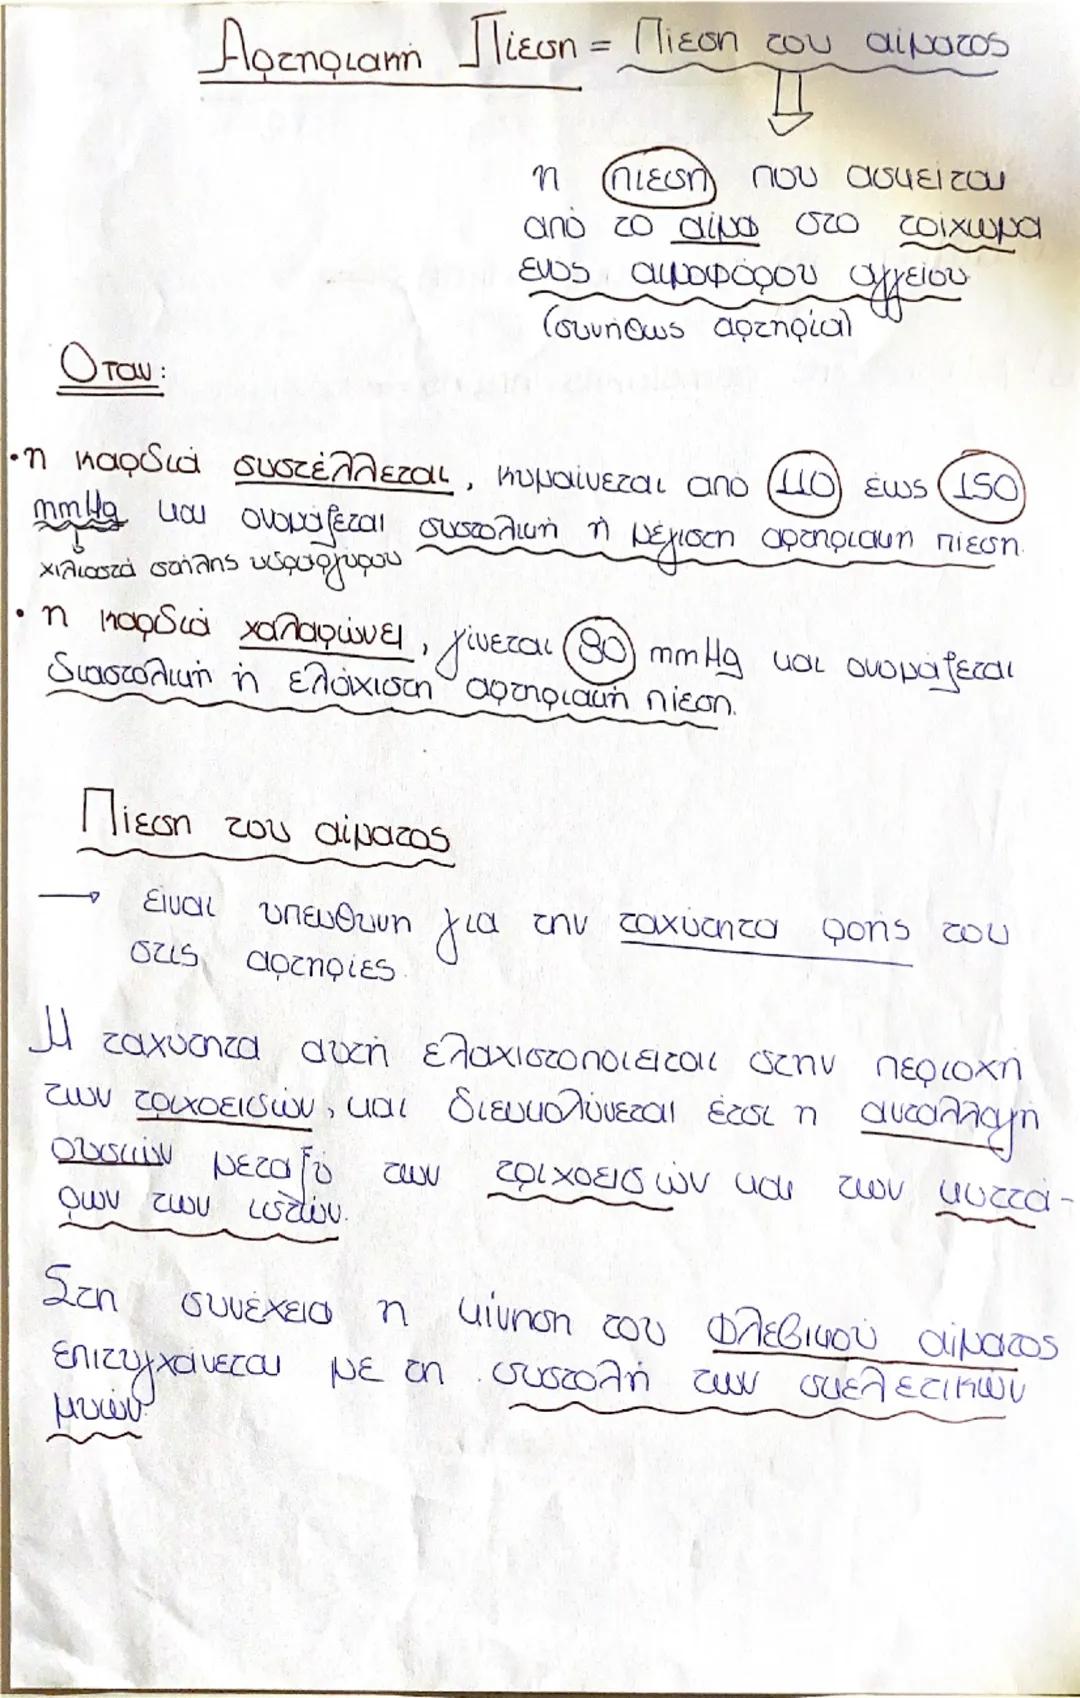 Αρτηριακή Πίεση = Πίεση του αίματος
η πίεση που ασκείται
από το αίμα στο τοίχωμα
ενός αιμοφόρου αγγείου
(συνήθως αρτηρία)
Όταν:
• η καρδιά συστέλλεται, κυμαίνεται από 110 έως 150
mmHg και ονομάζεται συστολική ή μέγιστη αρτηριακή πίεση.
χιλιοστά στήλης υδραργύρου
• η καρδιά χαλαρώνει, γίνεται 80 mmHg και ονομάζεται
διαστολική ή ελάχιστη αρτηριακή πίεση.
Πίεση του αίματος
→ είναι υπεύθυνη για την ταχύτητα ροής του
στις αρτηρίες.
Η ταχύτητα αυτή ελαχιστοποιείται στην περιοχή
των τριχοειδών, και διευκολύνεται έτσι η ανταλλαγή
ουσιών μεταξύ των τριχοειδών και των κυττά-
ρων των ιστών.
Στη συνέχεια η κίνηση του φλεβικού αίματος
επιτυγχάνεται με τη συστολή των σκελετικών
μυών